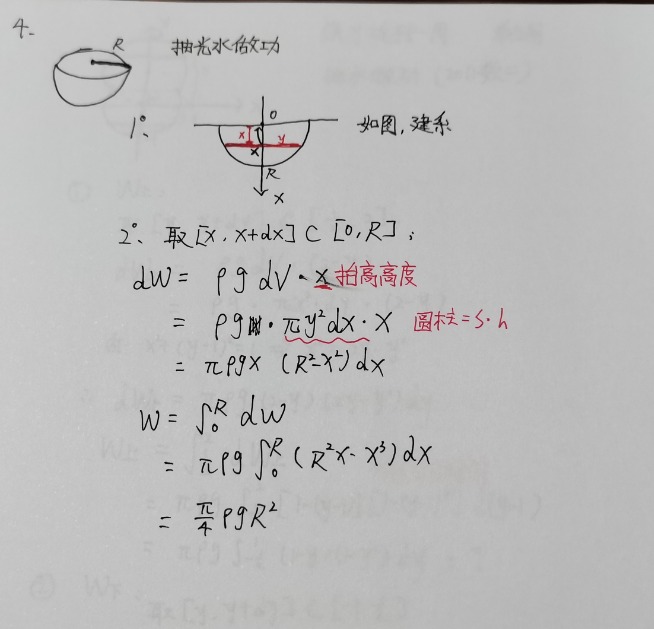 4.
R
抽光水做功
1°、
O
x
y
x
R
x
如图,建系
2°、取[x, x+dx]⊂[0,R];
dW = ρg dV · x 抬高高度
= ρg · πy²dx · x 圆柱=S·h
= πρgx (R²-x²)dx
W = ∫₀ᴿ dW
= πρg ∫₀ᴿ (R²x - x³)dx
= π/4 ρgR²